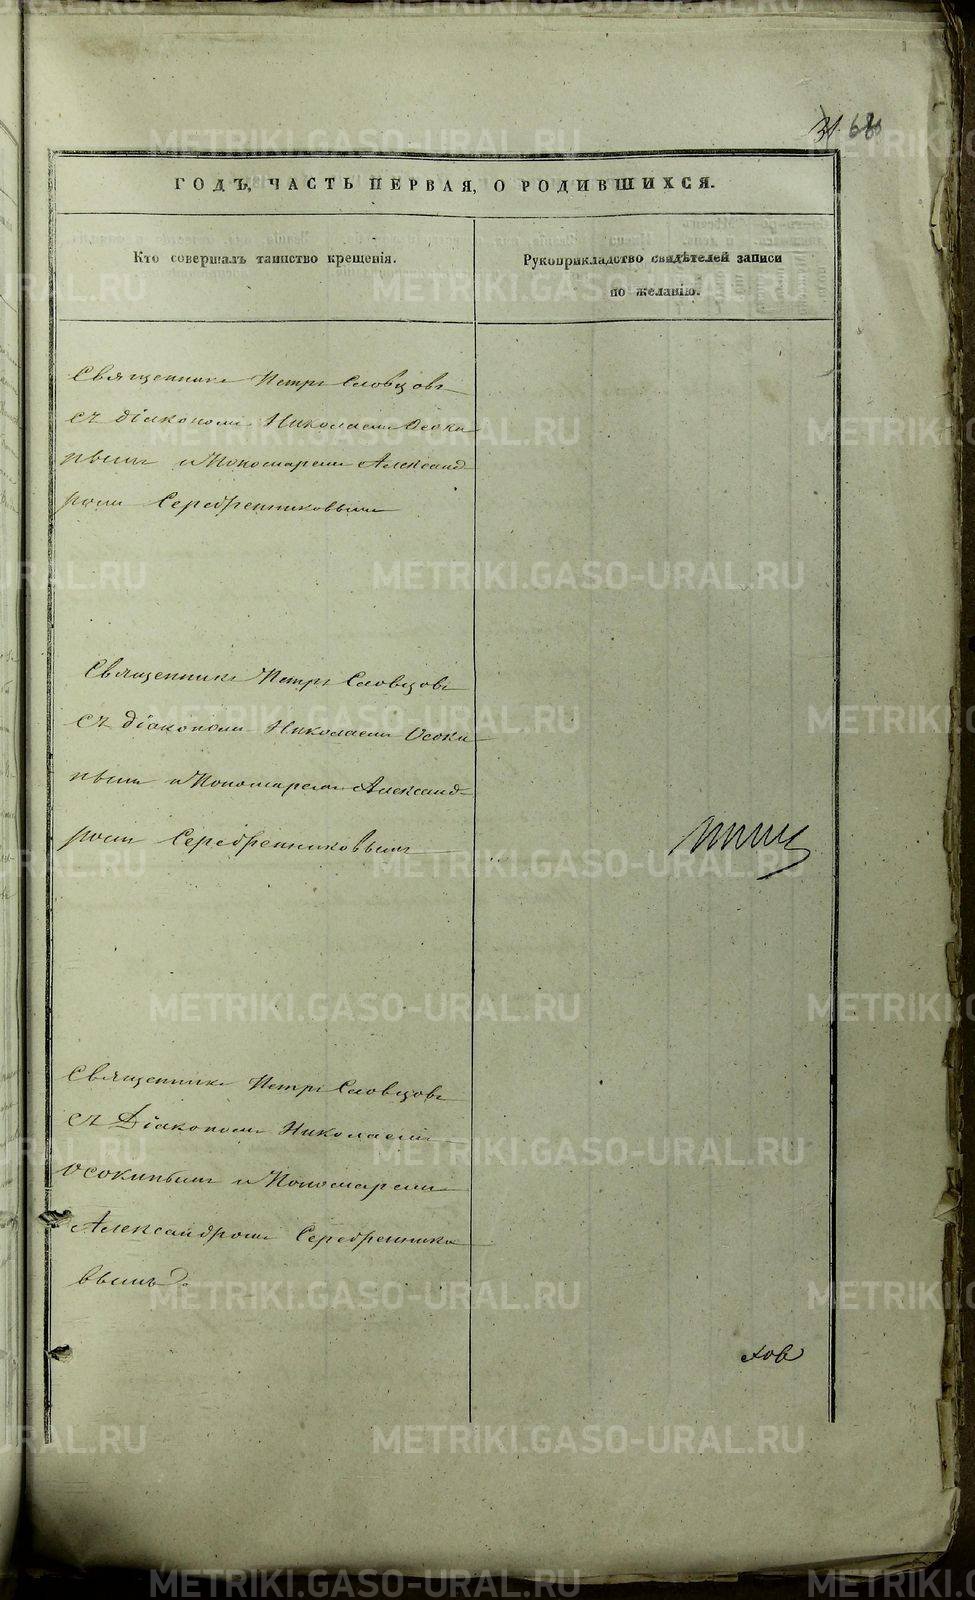 31. 68
ГОДЪ, ЧАСТЬ ПЕРВАЯ, О РОДИВШИХСЯ.
Кто совершалъ таинство крещенія.
Рукоприкладство свидѣтелей записи
по желанію.
Священникъ Петръ Словцовъ
съ діакономъ Николаемъ Осоки
нымъ и Пономаремъ Александ
ромъ Серебренниковымъ
Священникъ Петръ Словцовъ
съ діакономъ Николаемъ Осоки
нымъ и Пономаремъ Александ-
ромъ Серебренниковымъ
Священникъ Петръ Словцовъ
съ Діакономъ Николаемъ
Осокинымъ и Пономаремъ
Александромъ Серебреннико
вымъ.
ховъ
METRIKI.GASO-URAL.RU